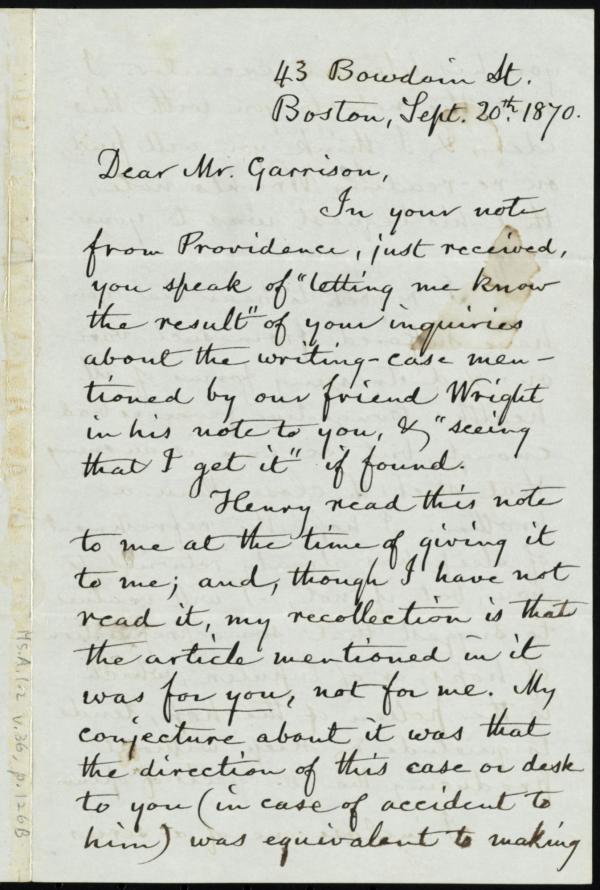 43 Bowdoin St.
Boston, Sept. 20th. 1870.
Dear Mr. Garrison,
In your note
from Providence, just received,
you speak of "letting me know
the result" of your inquiries
about the writing-case men-
tioned by our friend Wright
in his note to you, & "seeing
that I get it" if found.
Henry read this note
to me at the time of giving it
to me; and, though I have not
read it, my recollection is that
the article mentioned in it
was for you, not for me. My
conjecture about it was that
the direction of this case or desk
to you (in case of accident to
him) was equivalent to making
Ms.A.1.2 v.36, p.126B